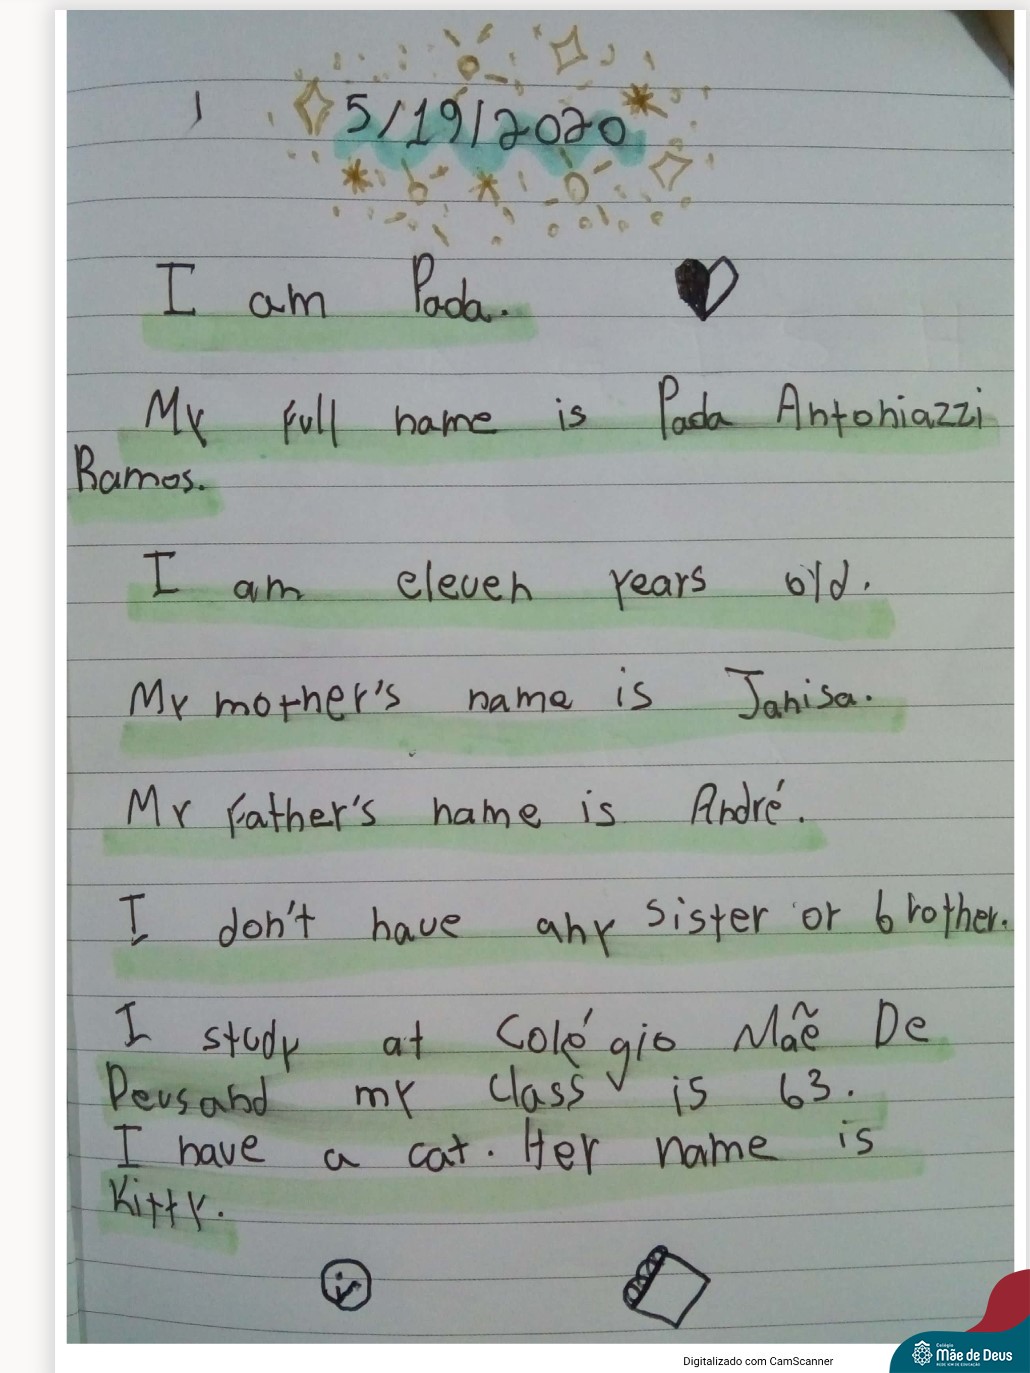 5/19/2020
I am Pada.
My full name is Pada Antoniazzi
Ramos.
I am eleven years old.
My mother's name is Janisa.
My father's name is André.
I don't have any sister or brother.
I study at Colégio Mãe De
Deus and my class is 63.
I have a cat. Her name is
Kitty.
Digitalizado com CamScanner
Colégio
Mãe de Deus